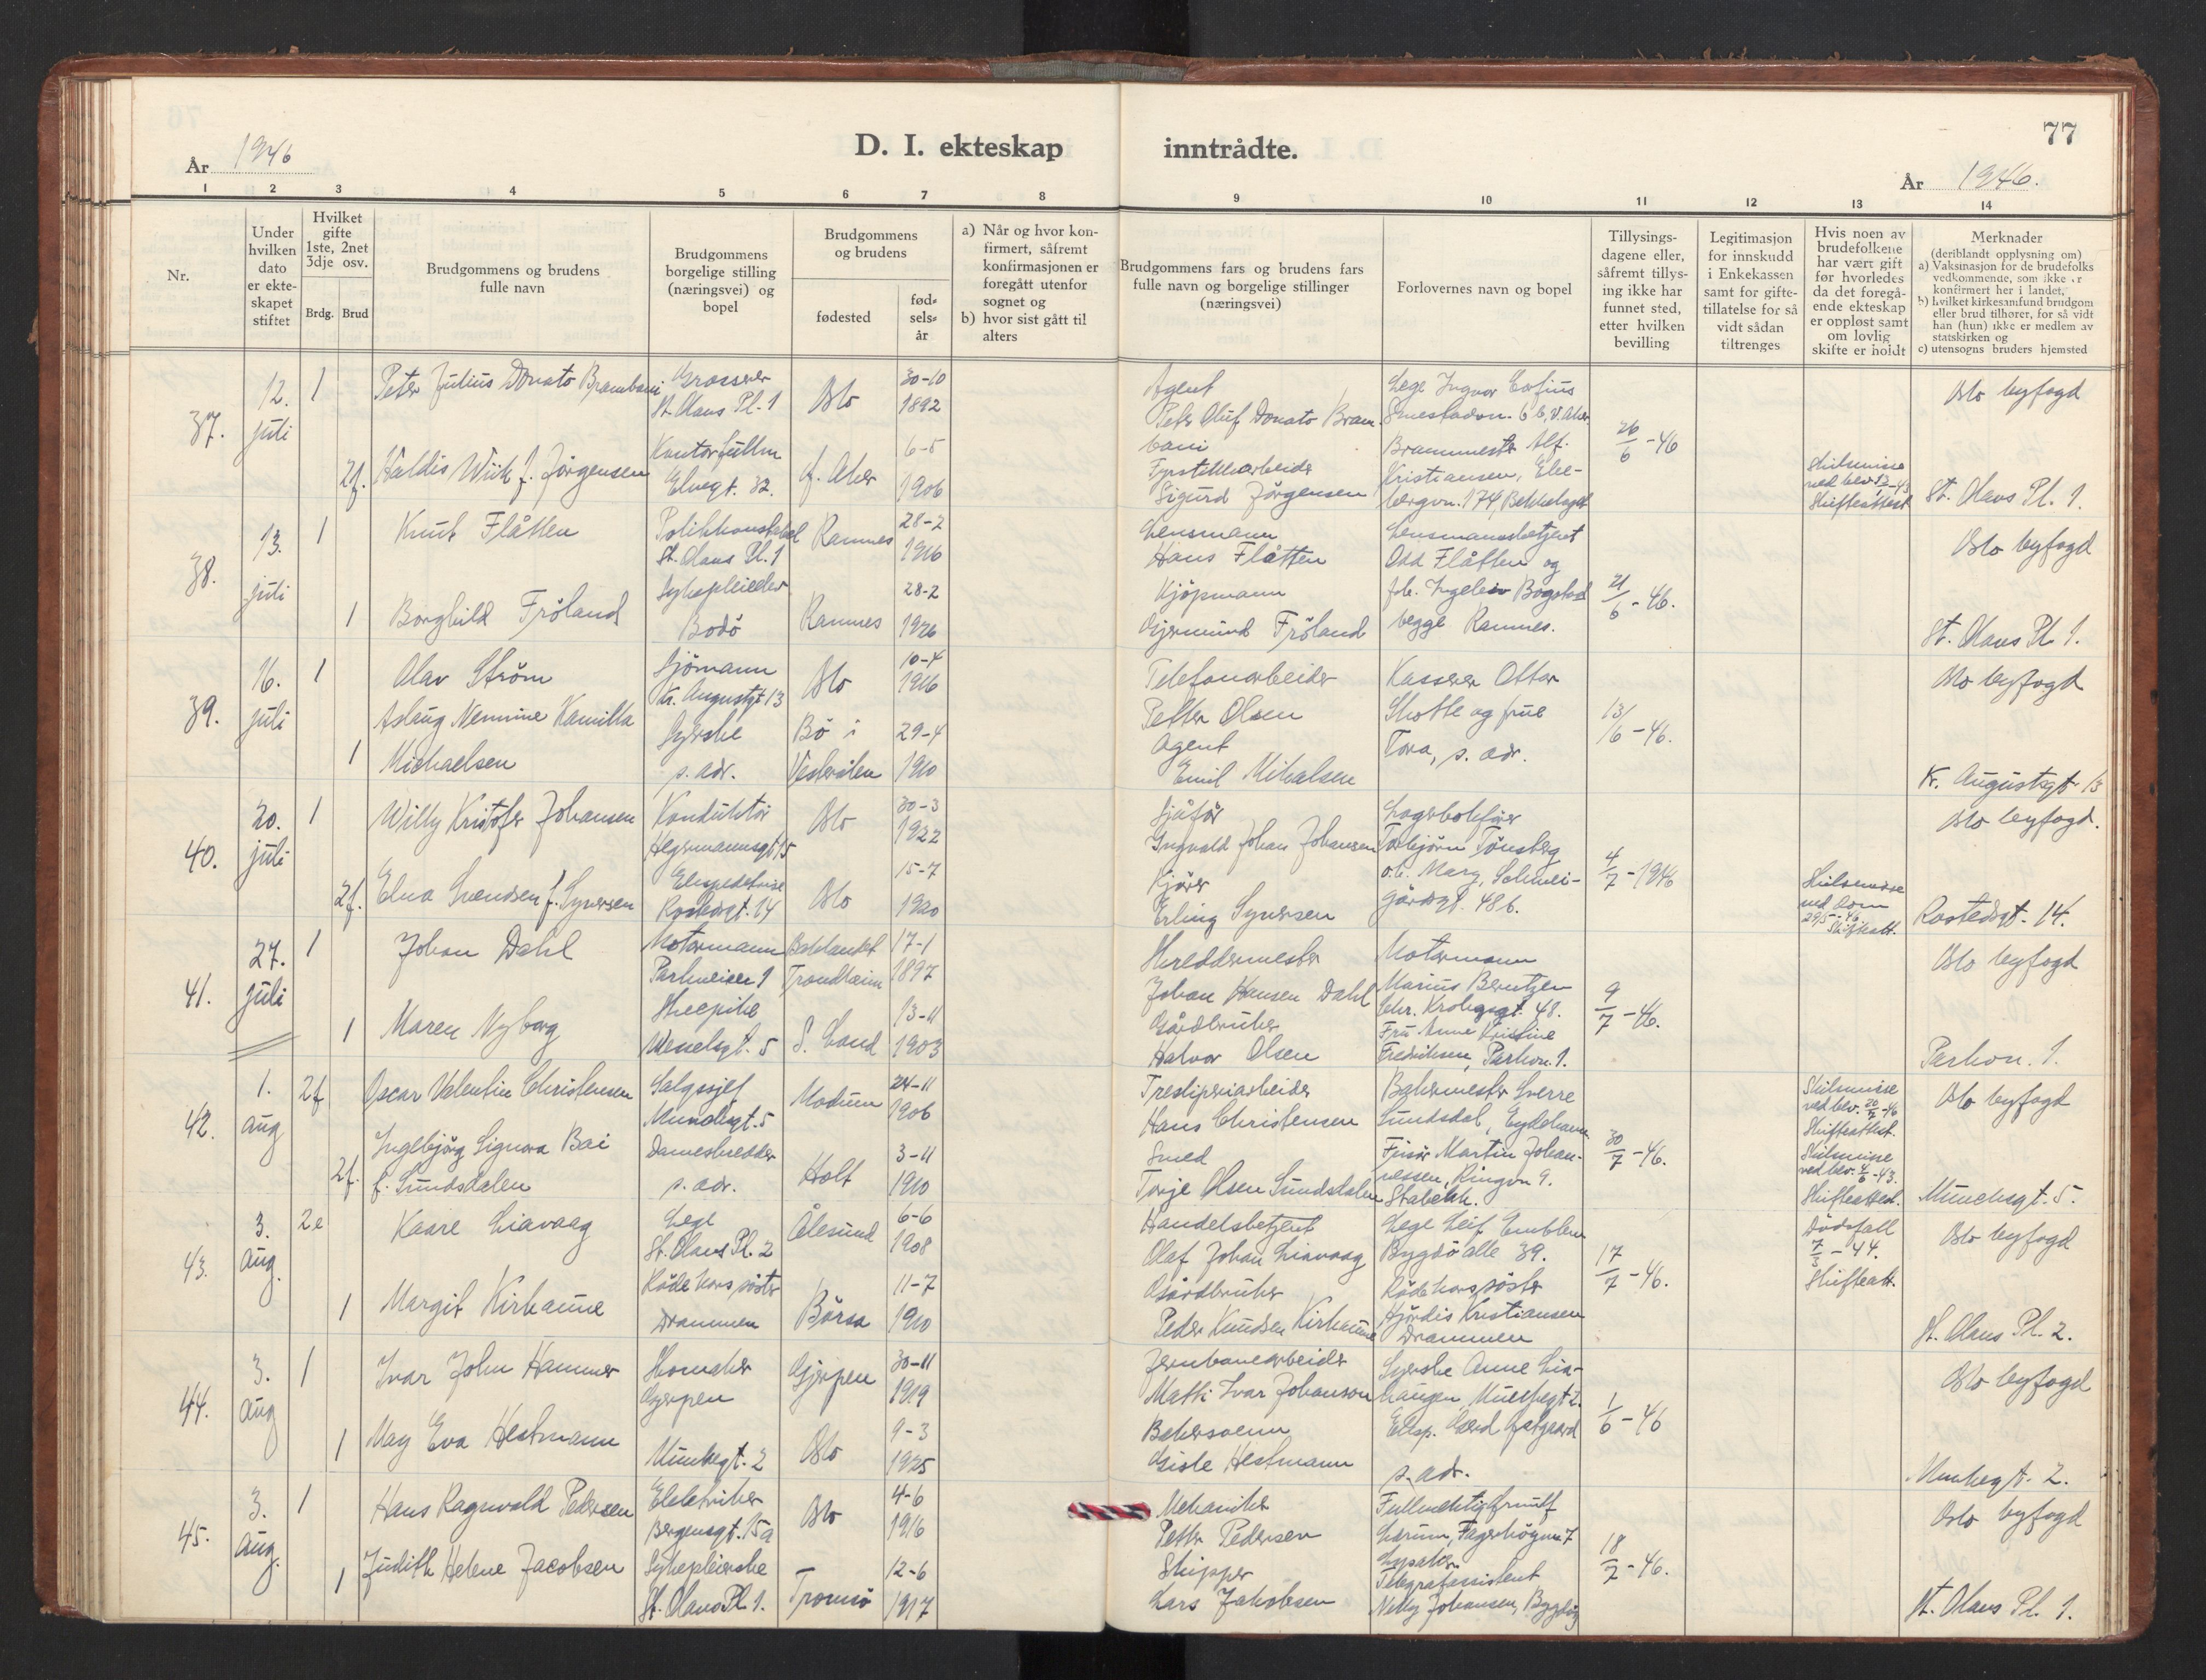 77
År 1946
D. I. ekteskap inntrådte.
År 1946.
1 2 3 4 5 6 7 8 9 10 11 12 13 14
Nr.
Under hvilken dato er ekte-skapet stiftet
Hvilket gifte 1ste, 2net 3dje osv.
Brdg. Brud
Brudgommens og brudens fulle navn
Brudgommens borgelige stilling (næringsvei) og bopel
Brudgommens og brudens
fødested
fød-sels-år
a) Når og hvor kon-firmert, såfremt konfirmasjonen er foregått utenfor sognet og
b) hvor sist gått til alters
Brudgommens fars og brudens fars fulle navn og borgelige stillinger (næringsvei)
Forlovernes navn og bopel
Tillysings-dagene eller, såfremt tillys-ing ikke har funnet sted, etter hvilken bevilling
Legitimasjon for innskudd i Enkekassen samt for gifte-tillatelse for så vidt sådan tiltrenges
Hvis noen av brudefolkene har vært gift før hvorledes da det foregå-ende ekteskap er oppløst samt om lovlig skifte er holdt
Merknader
(deriblandt opplysning om)
a) Vaksinasjon for de brudefolks vedkommende, som ikke er konfirmert her i landet,
b) hvilket kirkesamfund brudgom eller brud tilhører, for så vidt han (hun) ikke er medlem av statskirken og
c) utensogns bruders hjemsted
37.
12. juli
1
Peter Julius Donato Brambani
Grosserer
St. Olavs Pl. 1
Oslo
30-10
1892
Agent
Peter Oluf Donato Bram-
bani
Lege Ingvar
26/6 - 46
Oslo byfogd
2f.
Haldis Wiik f. Jörgensen
Kontorfullm
Elvegt. 32.
V. Aker
6-5
1906
Sigurd Jörgensen
Kristiansen, Eke-
bergvn. 174, Bekkelaget
Skilsmisse
Skifteattest
St. Olavs Pl. 1.
38.
13. juli
1
Knut Flåtten
Politikonstabel
St. Olavs Pl. 1
Ramnes
28-2
1916
Lensmann
Hans Flåtten
Lensmannsbetjent
Odd Flåtten og
21/6 - 46.
Oslo byfogd
1
Borghild Fröland
Sykepleierske
Bodö
Ramnes
28-2
1926
Kjöpmann
Gjermund Fröland
frk. Ingeleiv Bogstad
begge Ramnes.
St. Olavs Pl. 1.
39.
16. juli
1
Olav Ström
Sjömann
Kr. Augustgt 13
Oslo
10-4
1916
Telefonarbeider
Petter Olsen
Kasserer Otter
Skotte og frue
13/6 - 46.
Oslo byfogd
1
Aslaug Nennine Kamilla
Michaelsen
Syerske
s. adr.
Bö i
Vesterålen
29-4
1910
Agent
Emil Mikalsen
Tora, s. adr.
Kr. Augustsgt 13
40.
20. juli
1
Willy Kristofer Johansen
Konduktör
Hegermannsgt 15
Oslo
30-3
1922
Sjåför
Ingvald Johan Johansen
Lagerbokförer
Torbjörn Tönsberg
4/7 - 1946
Oslo byfogd.
2f.
Elna Svendsen f. Syversen
Ekspeditrise
Rostedsgt. 14
Oslo
15-7
1920
Kjörer
Erling Syversen
o.h. Mary, Schwei-
gårdsgt. 48 b.
Skilsmisse
ved dom
29/5 - 46
Skifteatt.
Rostedsgt. 14.
41.
27. juli
1
Johan Dahl
Motormann
Parkveien 1
Baklandet
Trondheim
17-1
1897
Skreddermester
Johan Hansen Dahl
Motormann
Marius Berntzen
Chr. Krohgsgt. 48.
9/7 - 46.
Oslo byfogd
1
Maren Nyborg
Kokkepike
Wesselsgt. 5
S. Land
13-11
1903
Gårdbruker
Halvor Olsen
Fru Anne Kristine
Fredriksen, Parkvn. 1.
Parkvn. 1.
42.
1. aug
2f
Oscar Valentin Christensen
Salgssjef
Munchsgt. 5
Modum
24-11
1906
Tresliperiarbeider
Hans Christensen
Bakermester Sverre
Sundsdal, Eydehavn
30/7 - 46.
Skilsmisse
ved bev. 20/2 - 46
Skifteattest.
Oslo byfogd
2f.
Ingebjörg Signora Bai
f. Sundsdalen
Dameskredder
s. adr.
Holt
3-11
1910
Smed
Torje Olsen Sundsdalen
Frisör Martin Johan-
nessen, Ringvn 9.
Stabekk.
Skilsmisse
ved bev. 4/6 - 43.
Skifteattest.
Munchsgt. 5.
43.
3. aug.
2e
Kaare Liavaag
Lege
St. Olavs Pl. 2
Ålesund
6-6
1908
Handelsbetjent
Olaf Johan Liavaag
Lege Leif Emblem
Bygdö alle 39.
17/7 - 46.
Dödsfall
7/3 - 44.
Skifteatt.
Oslo byfogd
1
Margit Kirkaune
Röde Kors söster
Drammen
Börsa
11-7
1910
Gårdbruker
Peder Knudsen Kirkaune
Röde Kors söster
Hjördis Kristiansen
Drammen
St. Olavs Pl. 2.
44.
3. aug
1
Ivar John Hammer
Skomaker
Gjerpen
Gjerpen
30-11
1919
Jernbanearbeider
Matti Ivar Johanson
Syerske Anne Lia-
haugen, Munchsgt 2.
1/6 - 46
Oslo byfogd
1
May Eva Hestmann
Munkegt. 2
Oslo
9-3
1925
Bakersvenn
Gisle Hestmann
s. adr.
Munkegt. 2.
45.
3. aug.
1
Hans Ragnvald Pedersen
Elektriker
Bergensgt. 15a
Oslo
4-6
1916
Mekaniker
Petter Pedersen
Fullmektig
Lysaker
18/7 - 46.
Oslo byfogd
1
Judith Helene Jacobsen
Sykepleierske
St. Olavs Pl. 1.
Tromsö
12-6
1917
Skipper
Lars Jakobsen
Telegrafassistent
Nelly Johansen, Bygdöy
St. Olavs Pl. 1.